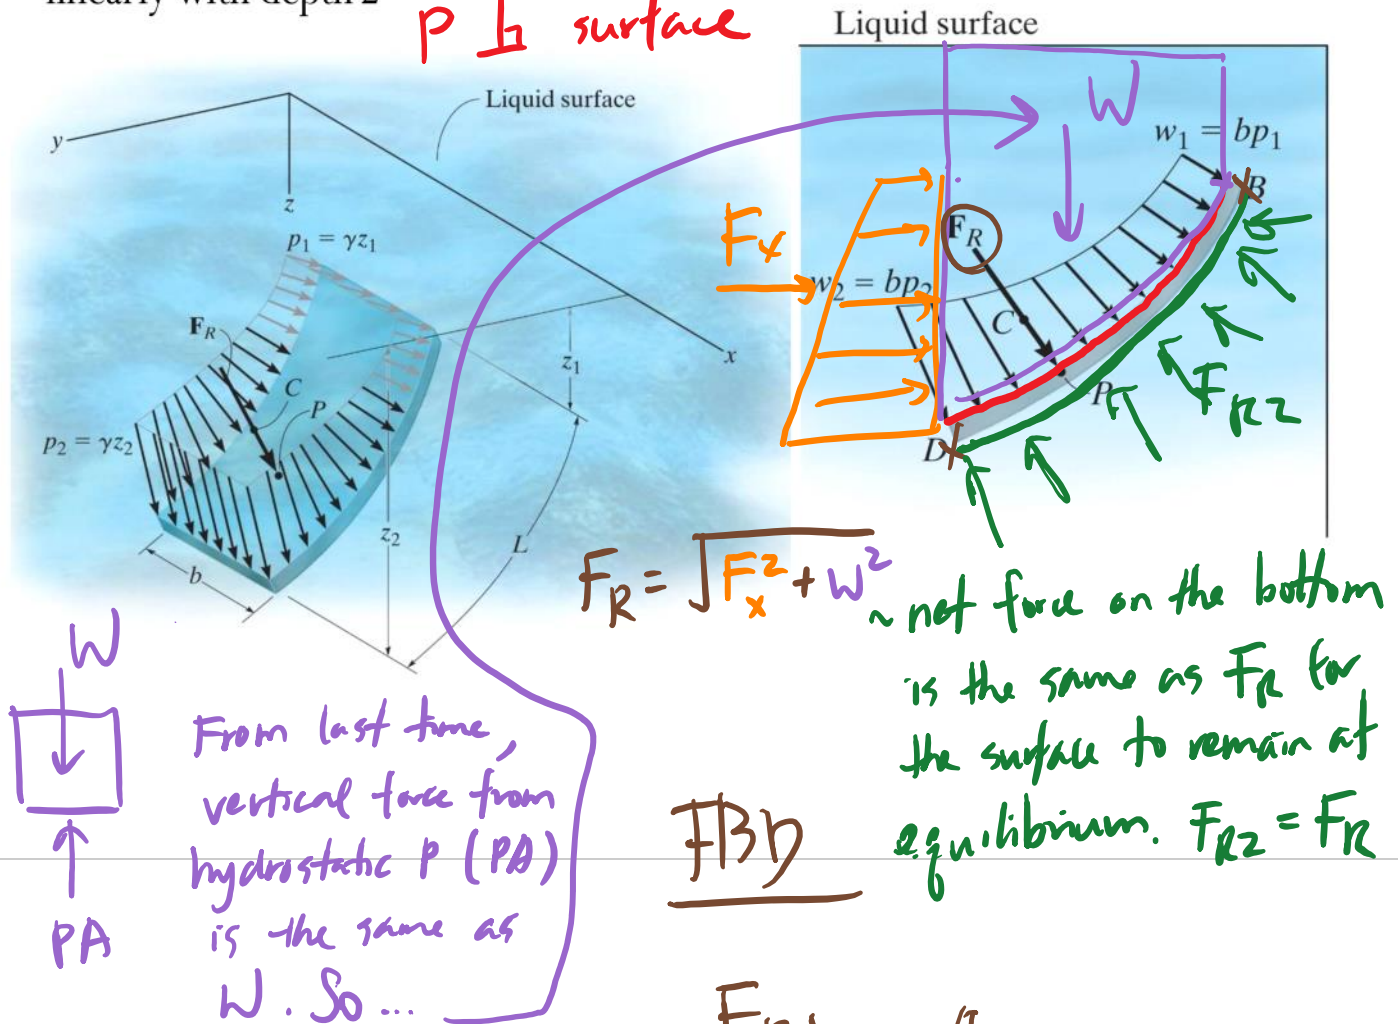 linearly with depth z
P ⊥ surface
Liquid surface
y
z
x
p₁ = γz₁
F_R
C
P
p₂ = γz₂
b
z₁
z₂
L
Liquid surface
W
w₁ = bp₁
B
F_x
F_R
w₂ = bp₂
C
P
D
F_R2
F_R = √F_x² + W²
~ net force on the bottom
is the same as F_R for
the surface to remain at
equilibrium. F_R2 = F_R
W
PA
From last time,
vertical force from
hydrostatic P (PA)
is the same as
W. So ...
FBD